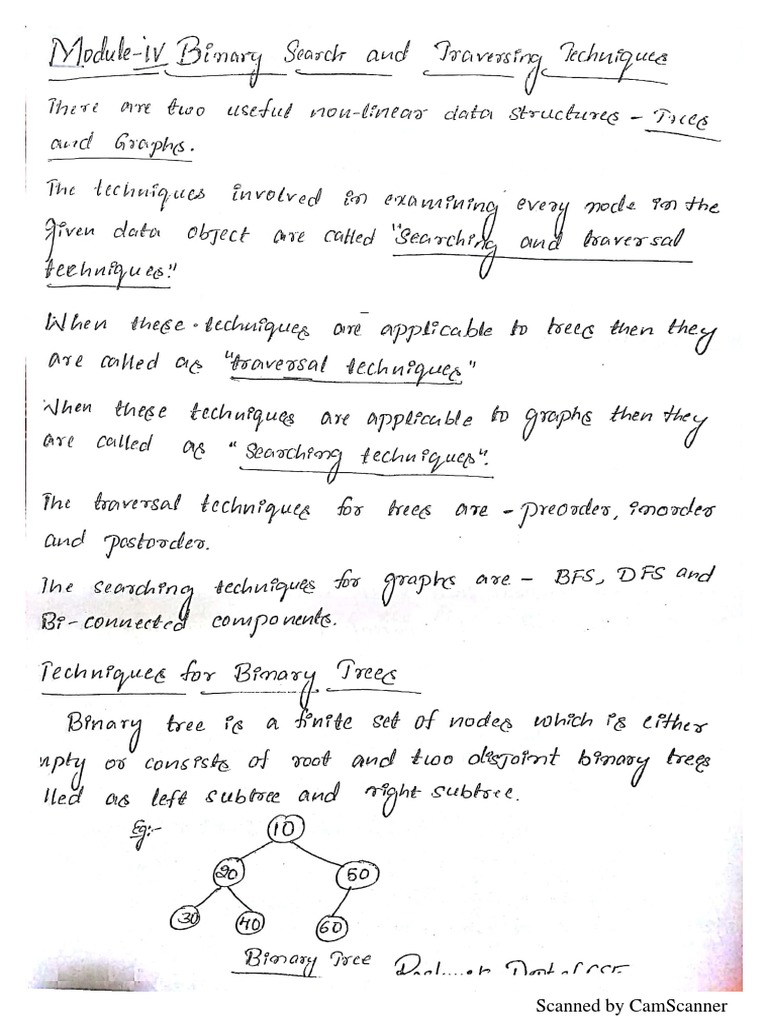 Module-iv Binary Search and Traversing Techniques
There are two useful non-linear data structures - Trees
and Graphs.
The techniques involved in examining every node in the
given data object are called "Searching and traversal
techniques."
When these techniques are applicable to trees then they
are called as "traversal techniques"
When these techniques are applicable to graphs then they
are called as "Searching techniques".
The traversal techniques for trees are - preorder, inorder
and postorder.
The searching techniques for graphs are - BFS, DFS and
Bi-connected components.
Techniques for Binary Trees
Binary tree is a finite set of nodes which is either
mpty or consists of root and two disjoint binary trees
lled as left subtree and right subtree.
Eg:-
10
20 50
30 40 60
Binary Tree
Scanned by CamScanner